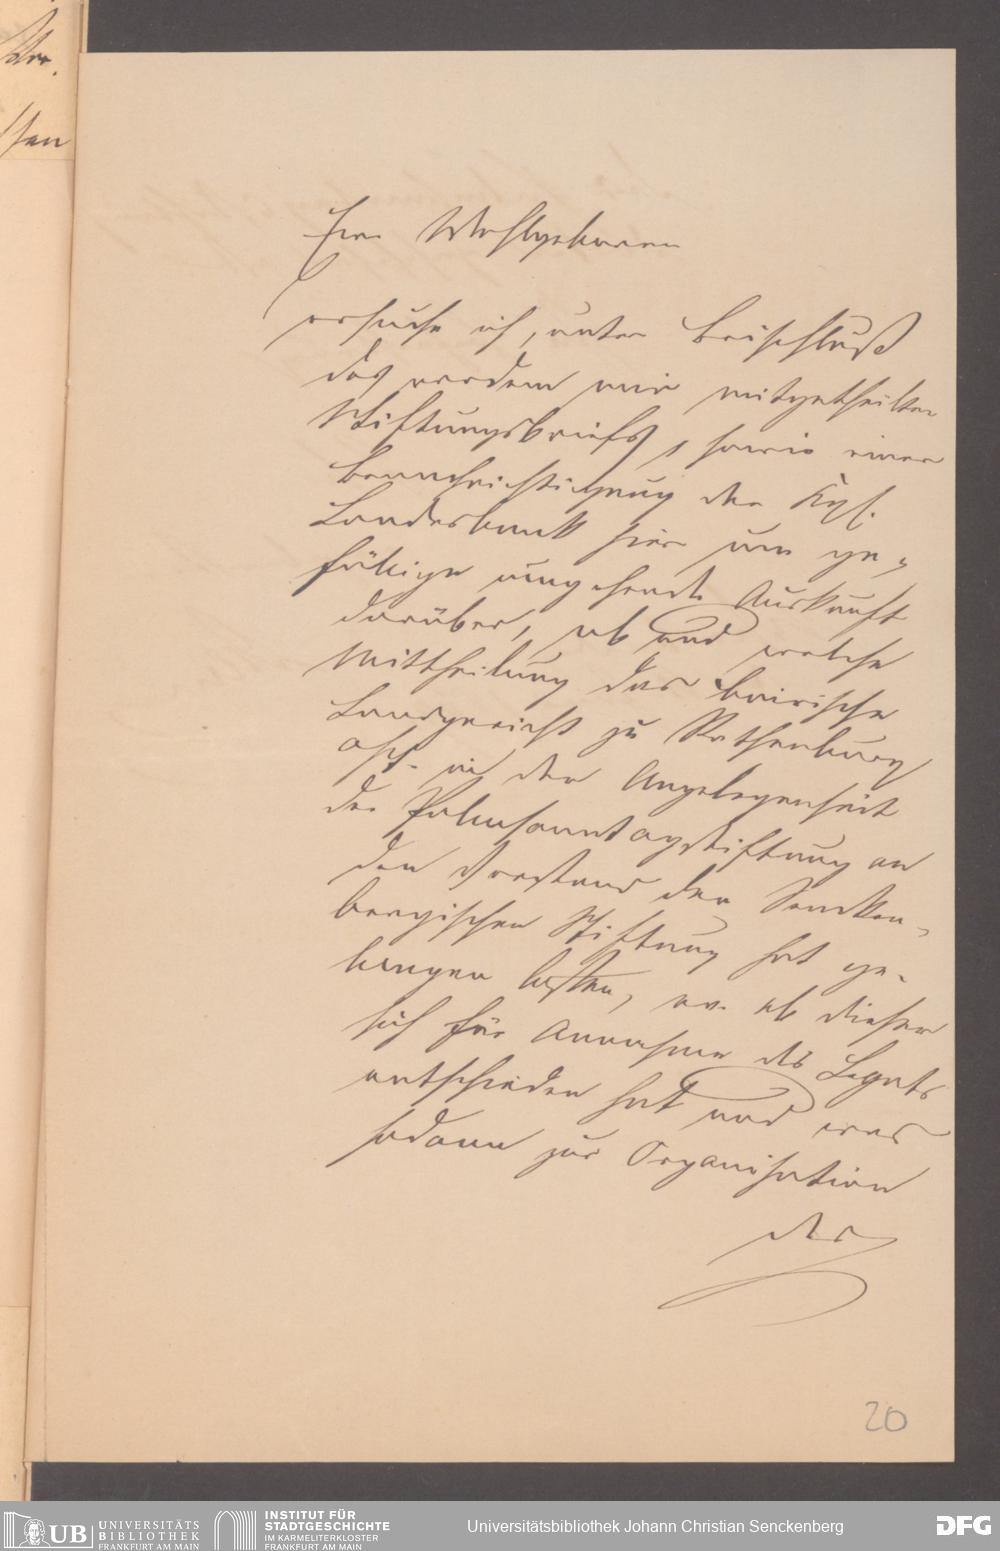 Euer Wohlgeboren
ersuche ich, unter Beischluß
des vordem mir mitgetheilten
Stiftungsbriefs, sowie einer
Benachrichtigung der Kgl.
Landesbank hier um ge-
fällige umgehende Auskunft
darüber, ob und welche
Mittheilung das bairische
Landgericht zu Rothenburg
in der Angelegenheit
der Palmsonntagstiftung an
den Vorstand der Sencken-
bergischen Stiftung hat ge-
langen lassen, ev. ob dieser
sich für Annahme des Legats
entschieden hat und was
sodann zur Organisation
der
20
UB UNIVERSITÄTS
BIBLIOTHEK
FRANKFURT AM MAIN
INSTITUT FÜR
STADTGESCHICHTE
IM KARMELITERKLOSTER
FRANKFURT AM MAIN
Universitätsbibliothek Johann Christian Senckenberg
DFG